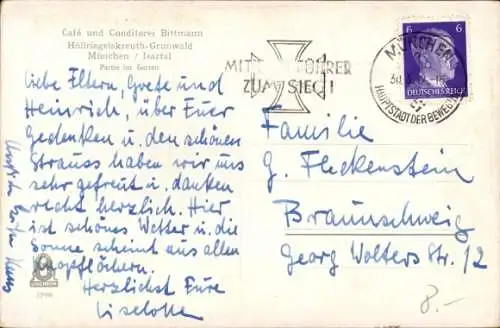 Café und Conditorei Bittmann
Höllriegelskreuth-Grünwald
München / Isartal
Partie im Garten
Liebe Eltern, Grete und
Heinrich, über Euer
Gedenken u. den schönen
Strauss haben wir uns
sehr gefreut u. danken
recht herzlich. Hier
ist schönes Wetter u. die
Sonne scheint aus allen
Knopflöchern.
Herzlichst Eure
Liselotte
Hans
MIT FÜHRER
ZUM SIEG!
MÜNCHEN
HAUPTSTADT DER BEWEGUNG
6 6
DEUTSCHES REICH
Familie
G. Fleckenstein
Braunschweig
Georg Wolters Str. 12
8.-